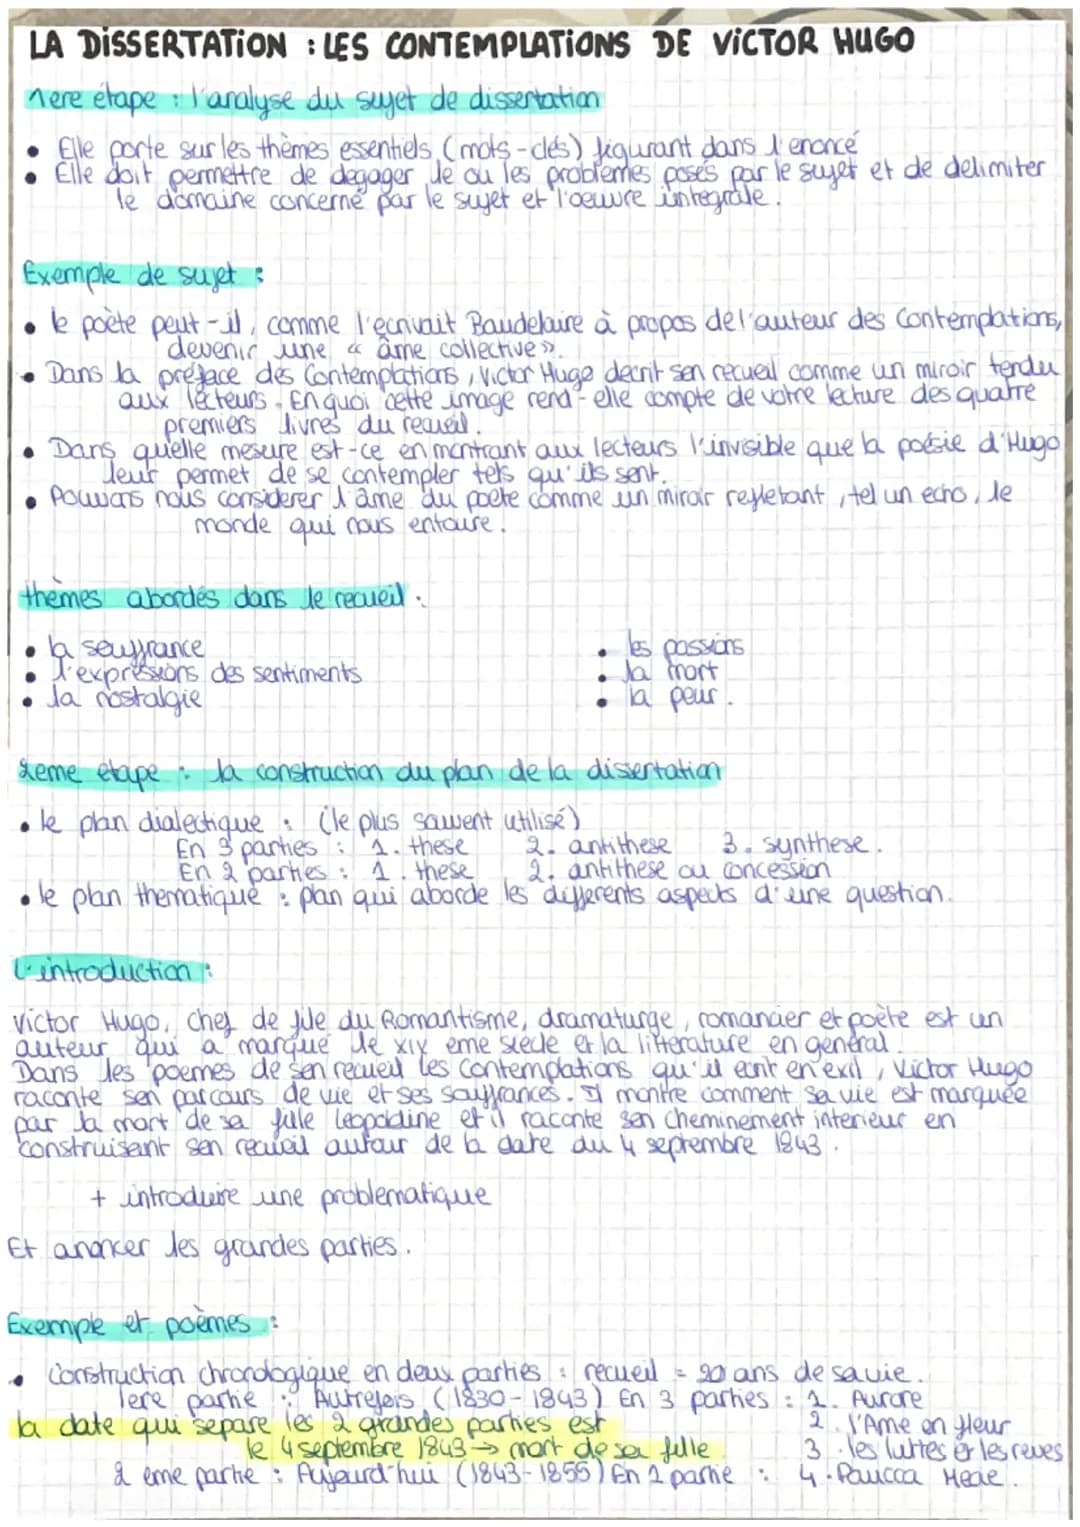 LA DISSERTATION : LES CONTEMPLATIONS DE VICTOR HUGO
1ere étape : l'analyse du sujet de dissertation
• Elle porte sur les thèmes essentiels (mots-clés) figurant dans l'enoncé
• Elle doit permettre de degager le ou les problèmes posés par le sujet et de delimiter
le domaine concerné par le sujet et l'oeuvre integrale.
Exemple de sujet :
• le poète peut-il, comme l'ecrivait Baudelaire à propos de l'auteur des Contemplations,
devenir une « âme collective ».
• Dans la preface des Contemplations, Victor Hugo decrit son recueil comme un miroir tendu
aux lecteurs. En quoi cette image rend-elle compte de votre lecture des quatre
premiers livres du recueil.
• Dans quelle mesure est-ce en montrant aux lecteurs l'invisible que la poésie d'Hugo
leur permet de se contempler tels qu'ils sont.
• Pouvons nous considerer l'âme du poete comme un miroir refletant, tel un echo, le
monde qui nous entoure.
thèmes abordés dans le recueil :
• la souffrance
• l'expressions des sentiments
• la nostalgie
• les passions
• la mort
• la peur.
2eme etape : la construction du plan de la dissertation
• le plan dialectique : (le plus souvent utilisé)
En 3 parties : 1. these 2. antithese 3. synthese.
En 2 parties : 1. these 2. antithese ou concession
• le plan thematique : plan qui aborde les differents aspects d'une question.
L'introduction :
Victor Hugo, chef de file du Romantisme, dramaturge, romancier et poète est un
auteur qui a marqué le XIX eme siecle et la litterature en general.
Dans les poemes de son recueil Les Contemplations qu'il ecrit en exil, Victor Hugo
raconte son parcours de vie et ses souffrances. Il montre comment sa vie est marquée
par la mort de sa fille Leopoldine et il raconte son cheminement interieur en
construisant son recueil autour de la date du 4 septembre 1843.
+ introduire une problematique
Et anoncer les grandes parties.
Exemple et poèmes :
• Construction chronologique en deux parties : recueil = 20 ans de sa vie.
1ere partie : Autrefois (1830-1843) En 3 parties : 1. Aurore
la date qui separe les 2 grandes parties est 2. l'Ame en fleur
le 4 septembre 1843 → mort de sa fille 3. les luttes et les reves
2 eme partie : Aujourd'hui (1843-1855) En 1 partie : 4. Paucca Meae.